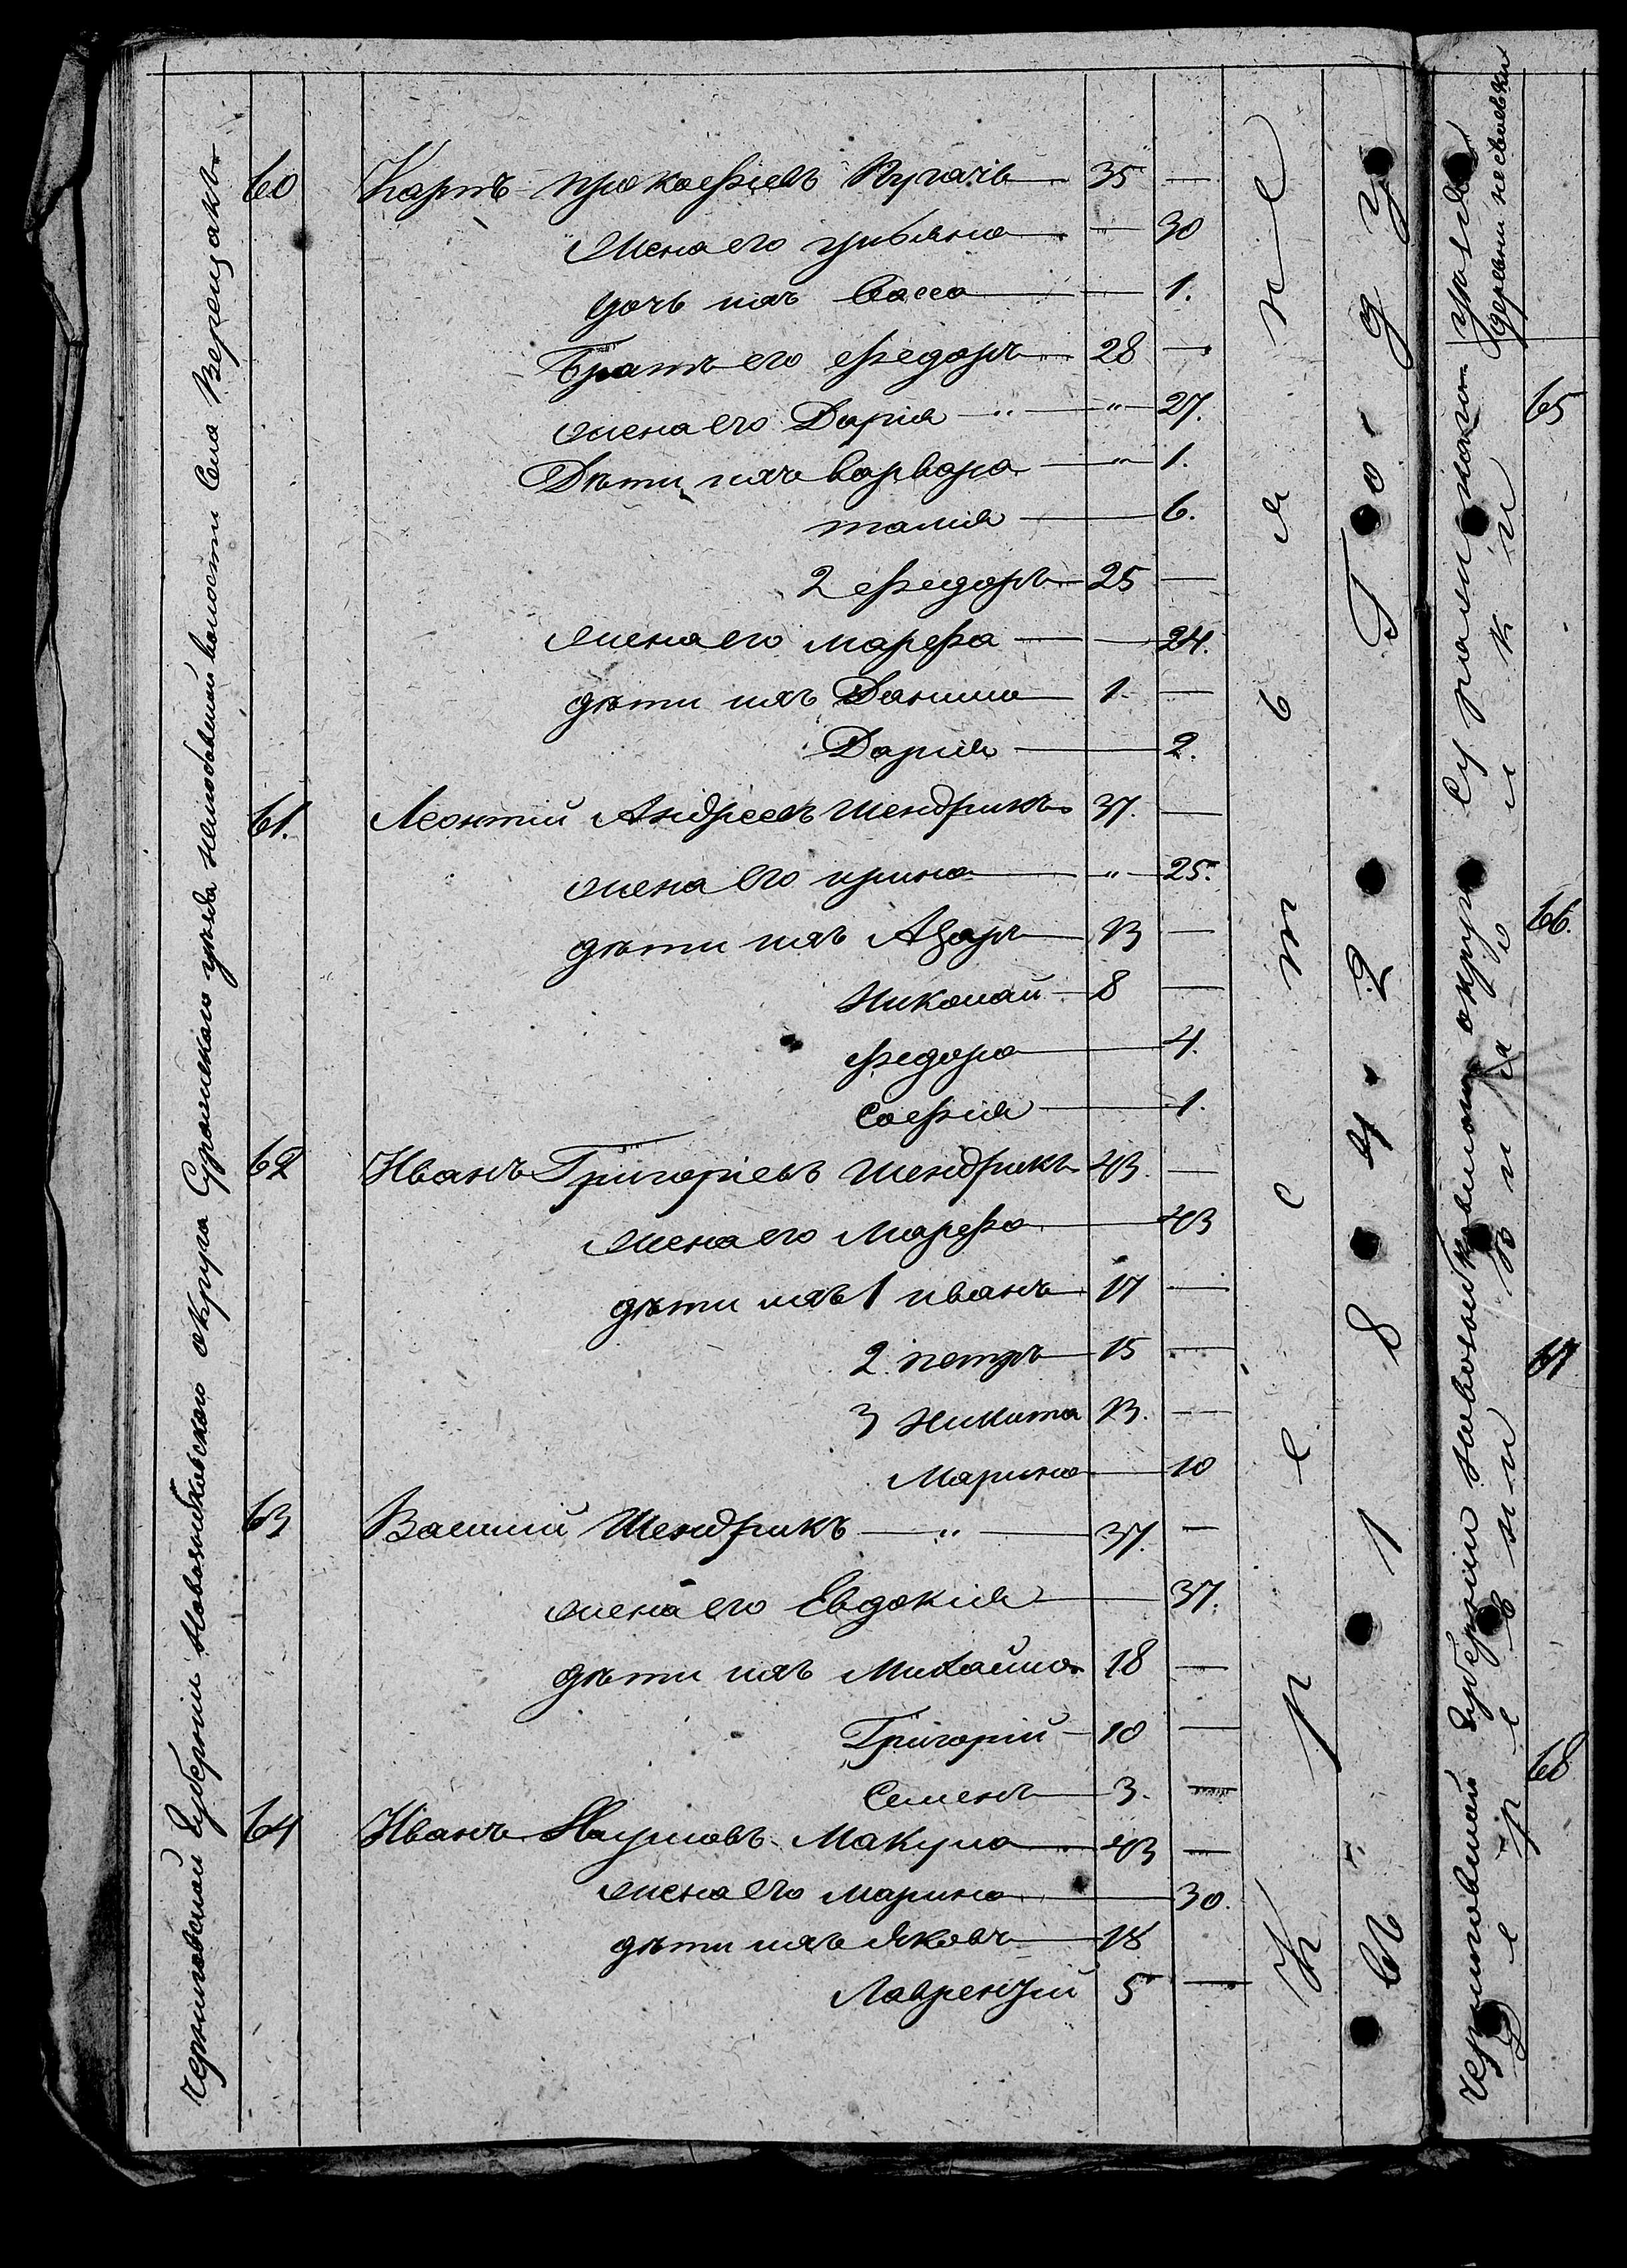 Черниговской Губерніи Новозыбковскаго округа Суражскаго уѣзда волости Села Верещаки
60 Карпъ прокофіевъ Пугачъ 35 —
жена его ульяна — 30
дочь ихъ васса — 1.
Братъ его Федоръ 28 —
жена его Дарія — 27.
Дѣти ихъ варвара — 1.
6.
2 Федоръ 25 —
жена его марфа — 24.
дѣти ихъ Данило 1. —
Дарія — 2.
61. Леонтій Андреевъ Шендрикъ 37. —
жена его ирина — 25.
дѣти ихъ Азаръ 13 —
Николай 8 —
Федора — 4.
Софія — 1.
62 Иванъ Григоріевъ Шендрикъ 43. —
жена его Марфа — 43
дѣти ихъ 1 иванъ 17 —
2 петръ 15 —
3 Никита 13. —
Марина — 10
63 Василій Шендрикъ — 37. —
жена его Евдокія — 37.
дѣти ихъ Михайло 18 —
Григорій 10 —
Семенъ 3. —
64 Иванъ Наумовъ Макуха 43 —
жена его марина — 30.
дѣти ихъ Яковъ 18
Лаврентій 5 —
Крестьяне
въ 1842 Году
Черниговской Губерніи Новозыбковскомъ округѣ Суражскомъ уѣздѣ
деревни несвоевки
65
66.
67
68